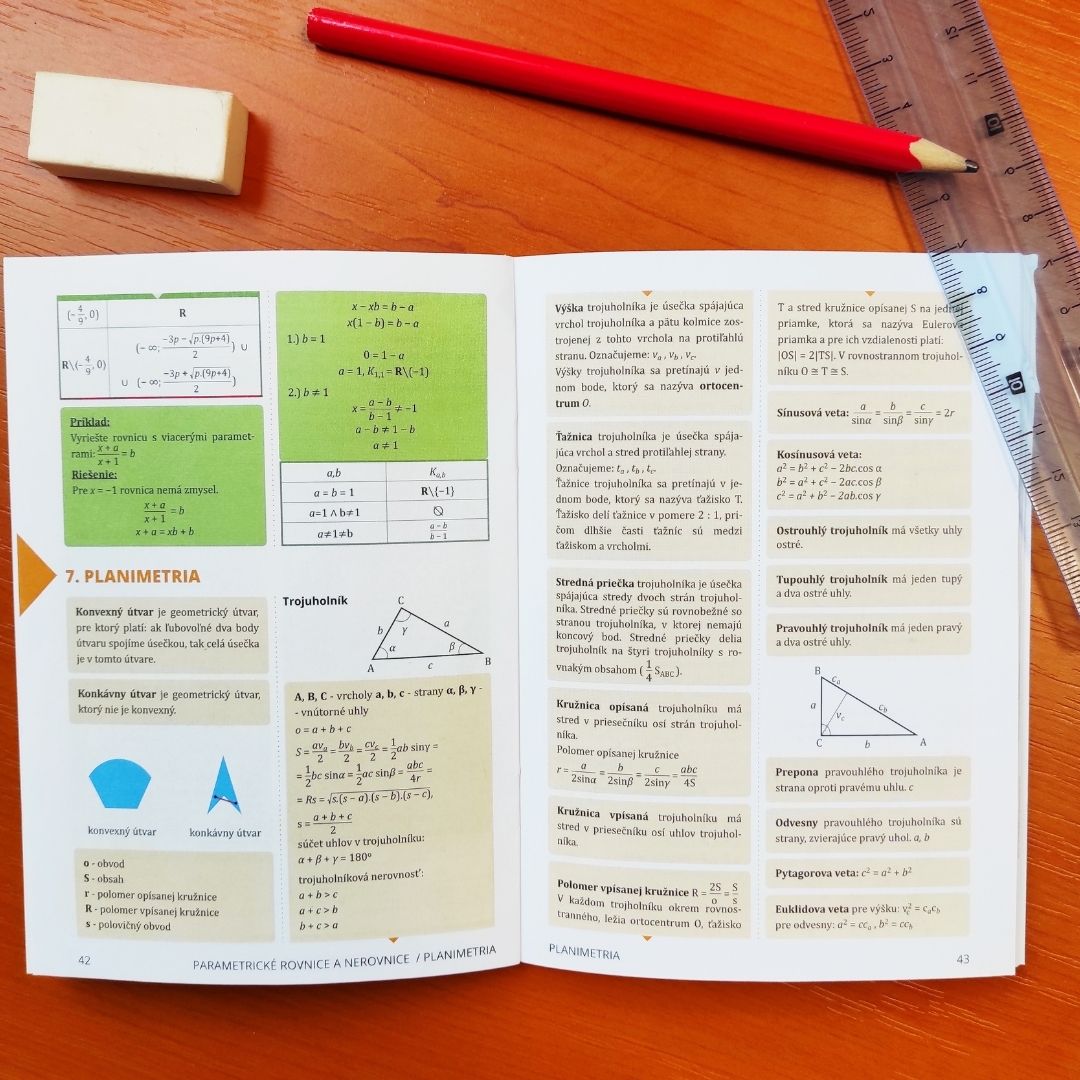 (-4/9, 0) R
R\(-4/9, 0) (- ∞; (-3p - √p.(9p+4))/2) ∪
∪ (- ∞; (-3p + √p.(9p+4))/2)
Príklad:
Vyriešte rovnicu s viacerými paramet-
rami: (x + a)/(x + 1) = b
Riešenie:
Pre x = -1 rovnica nemá zmysel.
(x + a)/(x + 1) = b
x + a = xb + b
x - xb = b - a
x(1 - b) = b - a
1.) b = 1
0 = 1 - a
a = 1, K1,1 = R\(-1)
2.) b ≠ 1
x = (a - b)/(b - 1) ≠ -1
a - b ≠ 1 - b
a ≠ 1
a,b Ka,b
a = b = 1 R\{-1}
a=1 ∧ b≠1 ∅
a≠1≠b (a - b)/(b - 1)
7. PLANIMETRIA
Konvexný útvar je geometrický útvar,
pre ktorý platí: ak ľubovoľné dva body
útvaru spojíme úsečkou, tak celá úsečka
je v tomto útvare.
Konkávny útvar je geometrický útvar,
ktorý nie je konvexný.
konvexný útvar konkávny útvar
o - obvod
S - obsah
r - polomer opísanej kružnice
R - polomer vpísanej kružnice
s - polovičný obvod
Trojuholník
C
b γ a
α β
A c B
A, B, C - vrcholy a, b, c - strany α, β, γ -
- vnútorné uhly
o = a + b + c
S = ava/2 = bvb/2 = cvc/2 = 1/2 ab sinγ =
= 1/2 bc sinα = 1/2 ac sinβ = abc/4r =
= Rs = √s.(s - a).(s - b).(s - c),
s = (a + b + c)/2
súčet uhlov v trojuholníku:
α + β + γ = 180°
trojuholníková nerovnosť:
a + b > c
a + c > b
b + c > a
42 PARAMETRICKÉ ROVNICE A NEROVNICE / PLANIMETRIA
Výška trojuholníka je úsečka spájajúca
vrchol trojuholníka a pätu kolmice zos-
trojenej z tohto vrchola na protiľahlú
stranu. Označujeme: va , vb , vc.
Výšky trojuholníka sa pretínajú v jed-
nom bode, ktorý sa nazýva ortocen-
trum O.
Ťažnica trojuholníka je úsečka spája-
júca vrchol a stred protiľahlej strany.
Označujeme: ta , tb , tc.
Ťažnice trojuholníka sa pretínajú v je-
dnom bode, ktorý sa nazýva ťažisko T.
Ťažisko delí ťažnice v pomere 2 : 1, pri-
čom dlhšie časti ťažníc sú medzi
ťažiskom a vrcholmi.
Stredná priečka trojuholníka je úsečka
spájajúca stredy dvoch strán trojuhol-
níka. Stredné priečky sú rovnobežné so
stranou trojuholníka, v ktorej nemajú
koncový bod. Stredné priečky delia
trojuholník na štyri trojuholníky s ro-
vnakým obsahom (1/4 SABC).
Kružnica opísaná trojuholníku má
stred v priesečníku osí strán trojuhol-
níka.
Polomer opísanej kružnice
r = a/2sinα = b/2sinβ = c/2sinγ = abc/4S
Kružnica vpísaná trojuholníku má
stred v priesečníku osí uhlov trojuhol-
níka.
Polomer vpísanej kružnice R = 2S/o = S/s
V každom trojholníku okrem rovnos-
tranného, ležia ortocentrum O, ťažisko
T a stred kružnice opísanej S na jednej
priamke, ktorá sa nazýva Eulerova
priamka a pre ich vzdialenosti platí:
|OS| = 2|TS|. V rovnostrannom trojuhol-
níku O ≅ T ≅ S.
Sínusová veta: a/sinα = b/sinβ = c/sinγ = 2r
Kosínusová veta:
a² = b² + c² - 2bc.cos α
b² = a² + c² - 2ac.cos β
c² = a² + b² - 2ab.cos γ
Ostrouhlý trojuholník má všetky uhly
ostré.
Tupouhlý trojuholník má jeden tupý
a dva ostré uhly.
Pravouhlý trojuholník má jeden pravý
a dva ostré uhly.
B
ca
a vc cb
C b A
Prepona pravouhlého trojuholníka je
strana oproti pravému uhlu. c
Odvesny pravouhlého trojuholníka sú
strany, zvierajúce pravý uhol. a, b
Pytagorova veta: c² = a² + b²
Euklidova veta pre výšku: vc² = cacb
pre odvesny: a² = cca , b² = ccb
PLANIMETRIA 43